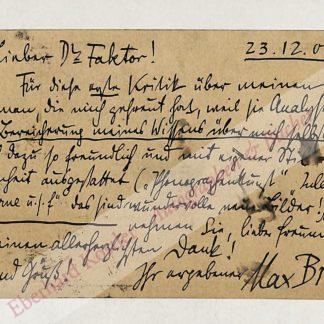 Lieber Dr Faktor! 23.12.0
Für diese erste Kritik über meinen
man, die mich gefreut hat, weil sie Analyse
Bereicherung meines Wissens über mich selbst
dazu so freundlich und mit eigener
heit ausgestattet („Phonographenkunst"
u.s.f." das sind wundervolle neue Bilder!
nehmen Sie, lieber Freund
meinen allerherzlichsten Dank!
und Gruß! Ihr ergebener Max Br
Eberhard Kö